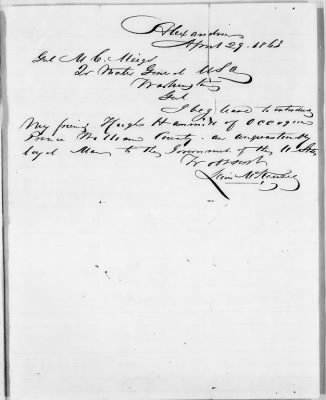 Alexandria
April 29. 1863
Genl M. C. Meigs
Qr Master General U S A
Washington
Genl
I beg leave to introduce
my friend Hugh Hammill of Occoquan
Prince William County. an unquestionably
loyal Man to the Government of the U States
Yr obt servt
Lewis McKenzie